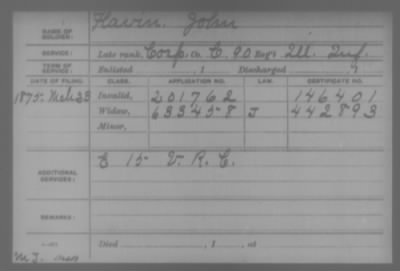 NAME OF SOLDIER: Flavin John
SERVICE: Late rank, Corp. Co. C, 90 Reg't Ill. Inf.
TERM OF SERVICE: Enlisted , 1 Discharged , 1
DATE OF FILING. CLASS. APPLICATION NO. LAW. CERTIFICATE NO.
1875 Mch 25 Invalid, 201762 146401
Widow, 633458 J 442893
Minor,
ADDITIONAL SERVICES: E 15 V. R. C.
REMARKS:
Died , 1 , at